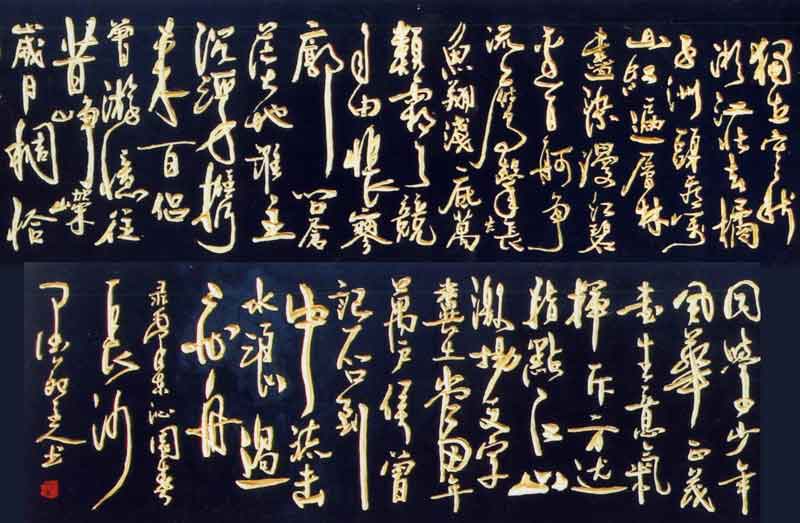 獨立寒秋
湘江北去橘
子洲頭看萬
山紅遍層林
盡染漫江碧
透百舸爭
流鷹擊長空
魚翔淺底萬
類霜天競
自由悵寥
廓問蒼
茫大地誰主
沉浮攜
來百侶
曾游憶往
昔崢嶸
歲月稠恰
同學少年
風華正茂
書生意氣
揮斥方遒
指點江山
激揚文字
糞土當年
萬戶侯曾
記否到
中流擊
水浪遏
飛舟
錄毛澤東沁園春
長沙